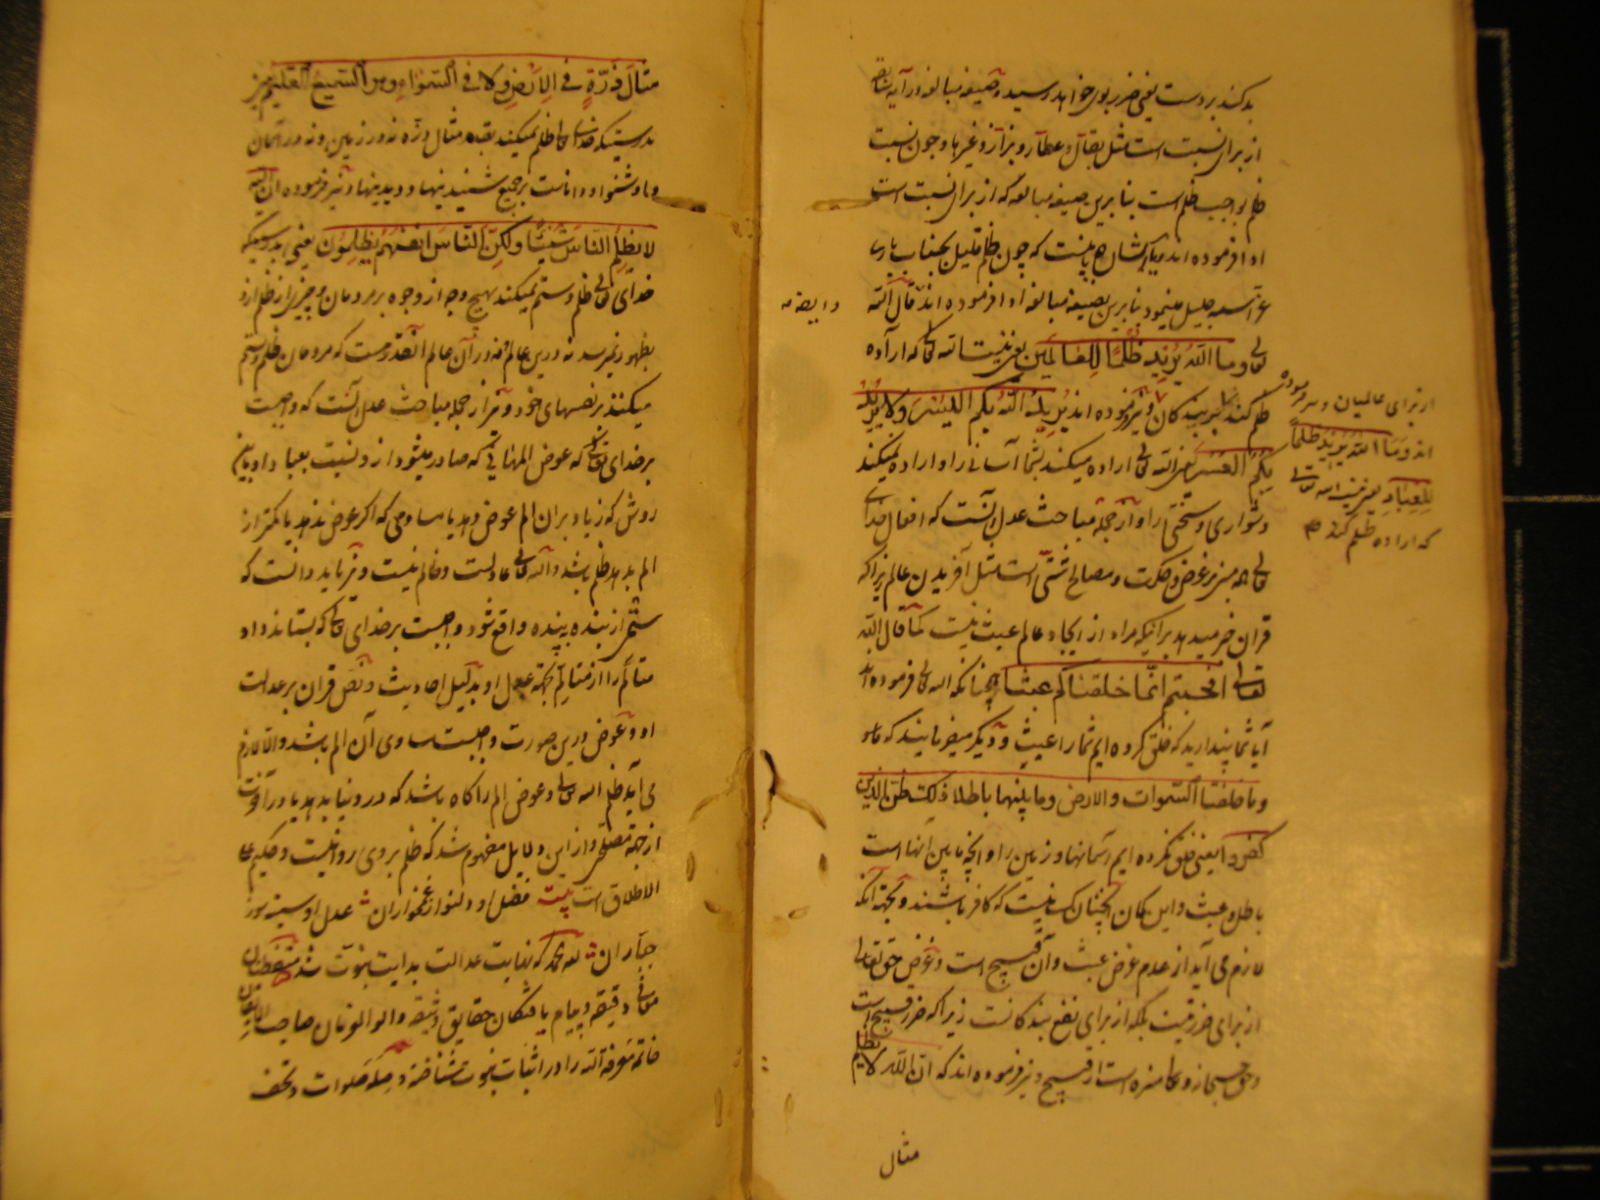 بد کند بر دست یعنی ضرر بوی خواهد رسید و صیغه مبالغه در آیه سابقه
از برای نسبت است مثل بقال و عطار و بزاز و غیرها و چون نسبت
ظلم است بنا برین صیغه مبالغه که از برای نسبت است
ادا فرموده اند که چون ظلم قلیل بجناب باری
بنا برین بصیغه مبالغه ادا فرموده اند قال الله
تعالی و ما الله یرید ظلما للعالمین یعنی نیست الله تعالی که اراده
ظلم کند بر بندکان و نیز فرموده اند یرید الله بکم الیسر و لا یرید
بکم العسر یعنی الله تعالی اراده میکند بشما آسانی را و اراده نمیکند
دشواری و سختی را و از جمله مباحث عدل آنست که افعال خدای
تعالی همه مبنی بر غرض و حکمت و مصالح شتی است مثل آفریدن عالم زیرا که
قران خبر میدهد برانیکه مراد از ایجاد عالم عبث نیست کما قال الله
تعالی افحسبتم انما خلقناکم عبثا چنانکه الله تعالی فرموده اند
آیا شما پندارید که خلق کرده ایم شما را عبث و دیگر میفرمایند که
و ما خلقنا السموات و الارض و ما بینهما باطلا ذلک ظن الذین
کفروا یعنی خلق نکرده ایم آسمانها و زمین را و آنچه مابین آنها است
باطل و عبث و این کمان آنچنان کسانیست که کافر باشند و بجهة آنکه
لازم می آید از عدم غرض عبث و آن قبیح است و غرض حق تعالی
از برای ضرر نیست بلکه از برای نفع بندکانست زیرا که ضرر قبیح است
و حق سبحانه و تعالی منزه است از قبیح و نیز فرموده اند که ان الله لا یظلم
مثال
از برای عالمیان و نیز فرموده
اند و ما الله یرید ظلما
للعباد یعنی نیست الله تعالی
که اراده ظلم کند
مثال ذرة فی الارض و لا فی السمواء و هو السمیع العلیم
بدرستیکه خدای تعالی ظلم نمیکند بقدر مثال ذره نه در زمین و نه در آسمان
و شنوا و داناست بر جمیع شنیدنیها و دیدنیها و نیز فرموده ان الله
لا یظلم الناس شیئا و لکن الناس انفسهم یظلمون یعنی بدرستیکه
خدای تعالی ظلم و ستم نمیکند بهیچ وجه از وجوه بر مردمان و چیزی از ظلم ازو
بظهور نمیرسد نه درین عالم نه در آن عالم که مردمان ظلم و ستم
میکنند بر نفسهای خود و نیز از جمله مباحث عدل آنست که واجبست
بر خدای تعالی که عوض المهائی که صادر میشود ازو نسبت بعباد
روش که زیاد بر ان الم عوض دهد یا مساوی که اکر عوض ندهد یا کمتر از
الم بدهد ظلم باشد و الله تعالی عادلست و ظالم نیست و نیز باید دانست که
ستمی از بنده به بنده واقع شود واجبست بر خدای تعالی که بستاند داد
متألم را از متألم بجهة عدل او بدلیل احادیث و نص قران بر عدالت
او و عوض درین صورت واجبست مساوی آن الم باشد والا لازم
می آید ظلم الله تعالی و عوض الم را کاه باشد که در دنیا بدهد یا در آخرت
از جهة مصلحتی و از این دلایل مفهوم شد که ظلم بر وی روا نیست و حکیم علی
الاطلاق است بیت فضل او دلنواز غمخواران عدل او سینه سوز
جباران لله الحمد که نهایت عدالت ببدایت نبوت شد
معانی دقیقه و پیام یافتکان حقایق
خاتمه معرفة الله را در اثبات نبوت شناخته و صله صلوات و تحف